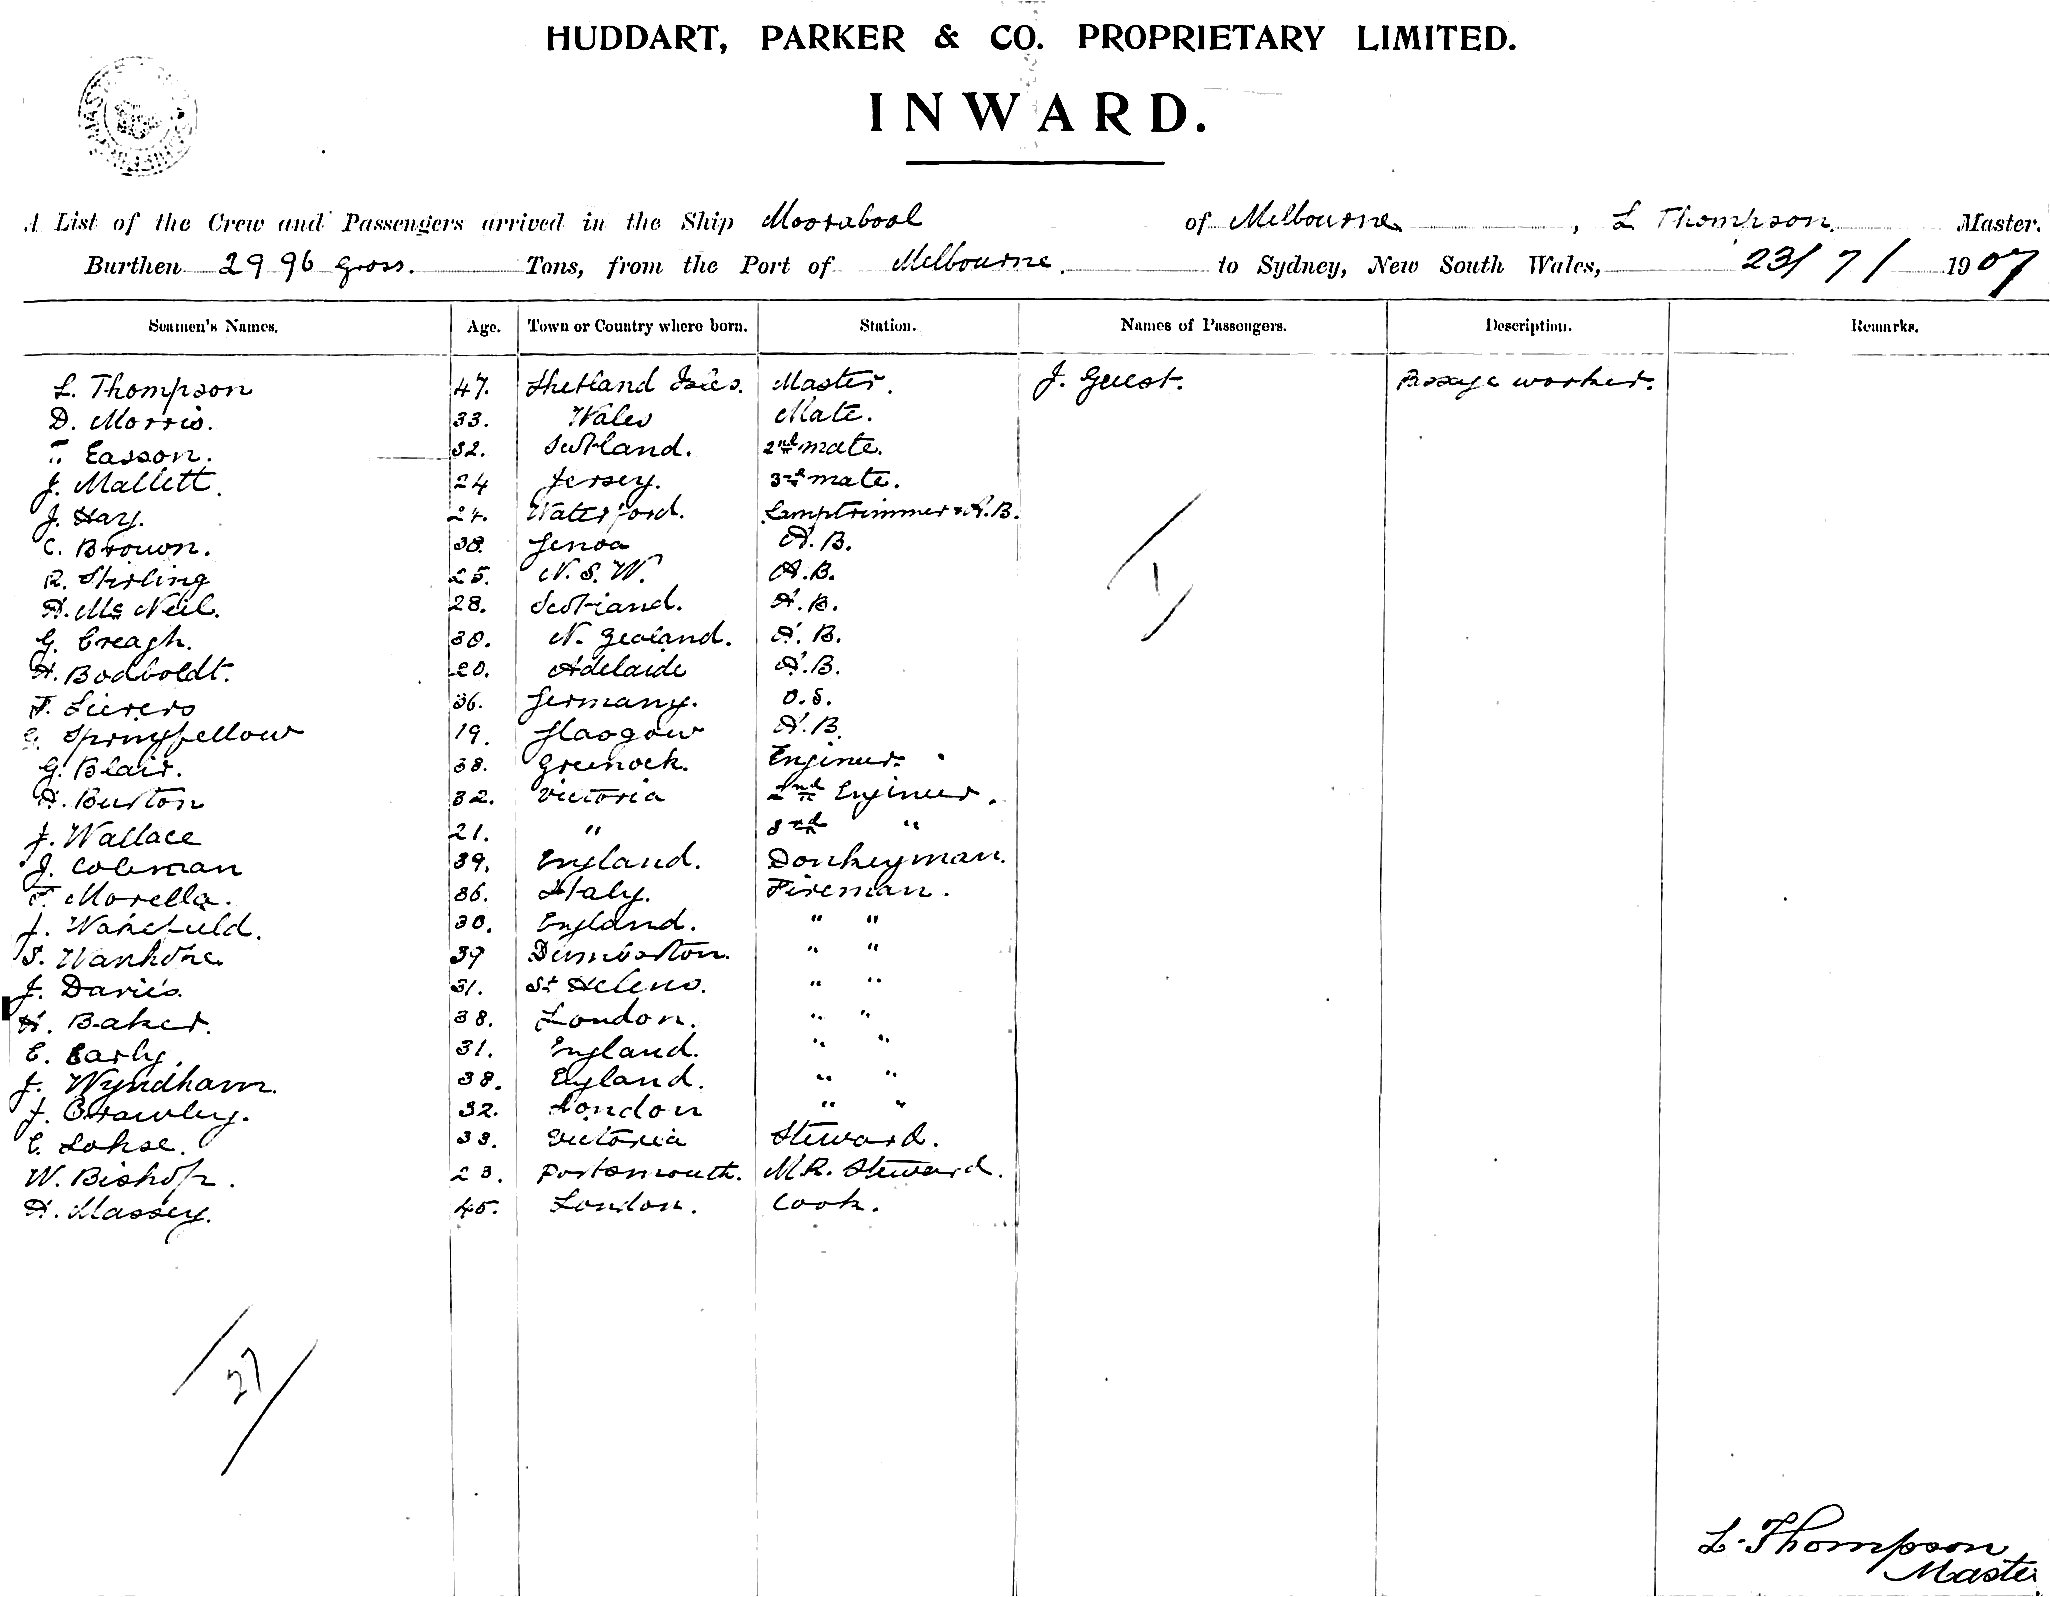 HUDDART, PARKER & CO. PROPRIETARY LIMITED.
INWARD.
A List of the Crew and Passengers arrived in the Ship Moorabool of Melbourne, L Thompson Master.
Burthen 2996 Gross. Tons, from the Port of Melbourne. to Sydney, New South Wales, 23/7/1907
Seamen's Names. Age. Town or Country where born. Station. Names of Passengers. Description. Remarks.
L. Thompson 47. Shetland Isles. Master. J. Guest. Passage worker.
D. Morris. 33. Wales Mate.
Easson. 32. Scotland. 2nd mate.
J. Mallett. 24 Jersey. 3rd mate.
J. Hay. 24. Waterford. Lamptrimmer & A.B.
C. Brown. 38. Genoa A.B.
R. Stirling 25. N.S.W. A.B.
A. McNeil. 28. Scotland. A.B.
G. Creagh. 30. N. Zealand. A.B.
H. Bodboldt. 20. Adelaide A.B.
F. Sievers 36. Germany. O.S.
Springfellow 19. Glasgow A.B.
G. Blair. 38. Greenock. Engineer.
A. Burton 32. Victoria 2nd Engineer.
J. Wallace 21. " 3rd "
J. Coleman 39. England. Donkeyman.
F. Morella. 36. Italy. Fireman.
J. Wakefield. 30. England. " "
S. Wanhove. 39 Dumbarton. " "
J. Davies. 31. St Helens. " "
H. Baker. 38. London. " "
E. Early. 31. England. " "
J. Wyndham. 38. England. " "
J. Crawley. 32. London " "
C. Lohse. 33. Victoria Steward.
W. Bishop. 23. Portsmouth. M.R. Steward.
H. Massey. 45. London. Cook.
/1/
/27/
L. Thompson
Master